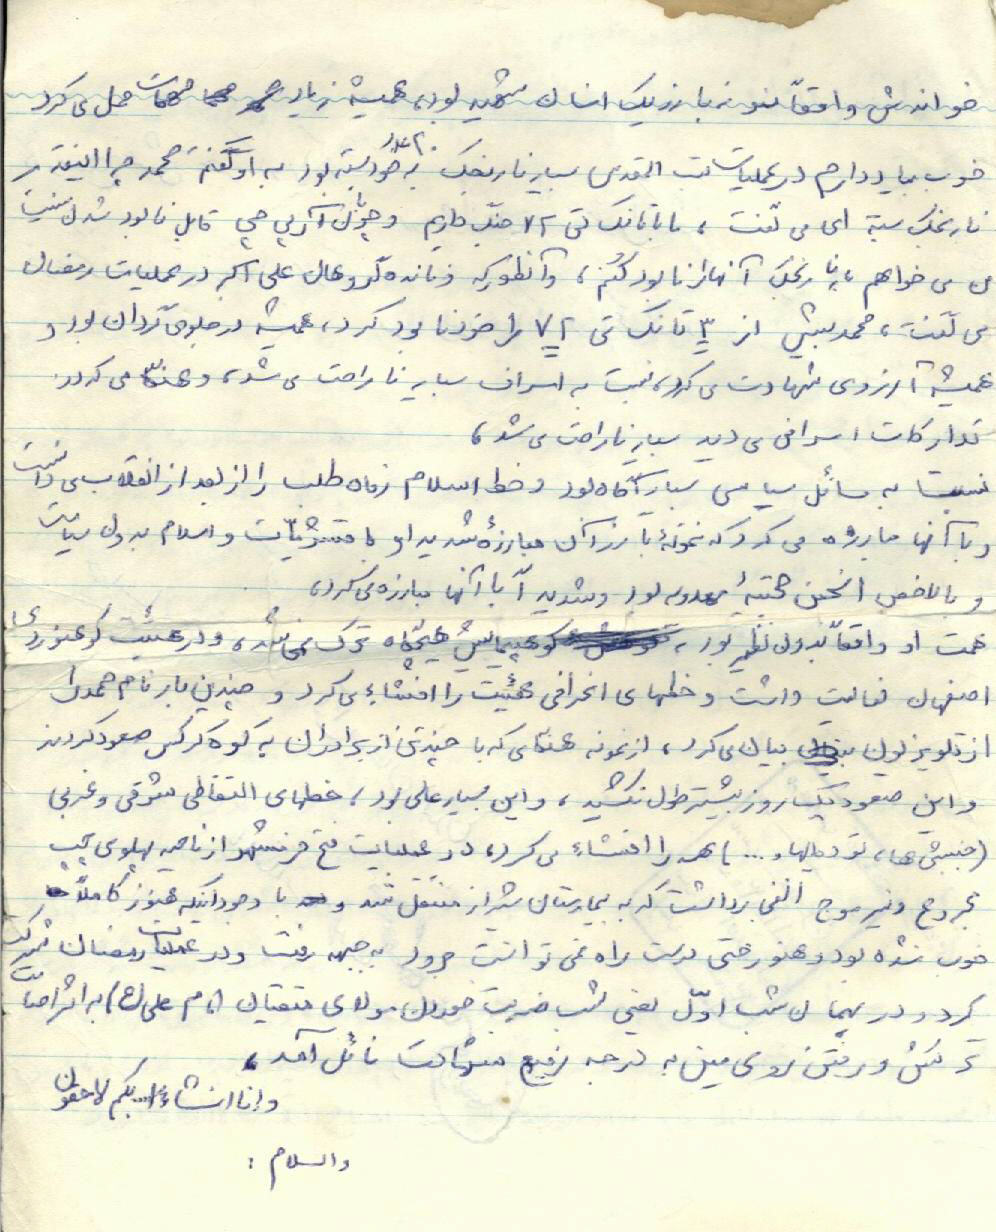 خواندش واقعاً نمونه بارز یک انسان شهید بود، همیشه زیاد مهمات حمل می کرد
خوب بیاد دارم در عملیات بیت القدس بسیار نارنجک به خود بسته بود به او گفتم محمد چرا اینقدر
نارنجک بسته ای می گفت، ما با تانک تی ۷۲ جنگ داریم و چون آر پی جی قابل نابود شدن نیست
من می خواهم با نارنجک آنها را نابود کنم، و آنطور که فرمانده گروهان علی اکبر در عملیات رمضان
می گفت، محمد بیش از ۳ تانک تی ۷۲ را خود نابود کرد، همیشه در جلوی گردان بود و
همیشه آرزوی شهادت می کرد، نسبت به اسراف بسیار ناراحت می شد، و هنگامی که در
تدارکات اسرافی می دید بسیار ناراحت می شد،
نسبت به مسائل سیاسی بسیار آگاه بود و خط اسلام رفاه طلب را از بعد از انقلاب می دانست
و با آنها مبارزه می کرد که نمونهٔ بارز آن مبارزهٔ شدید او با قشریات و اسلام بدون سیاست
و بالاخص انجمن حجتیهٔ مهدویه بود و شدیداً با آنها مبارزه می کرد،
همت او واقعاً بدون نظیر بود، کوهپیمائیش هیچگاه ترک نمی شد، و در هیئت کوهنوردی
اصفهان فعالیت داشت و خطهای انحرافی هیئت را افشاء می کرد و چندین بار نام محمد را
از تلویزیون بیان می کرد، از نمونه هنگامی که با چند تن از برادران به کوه کرکس صعود کردند
و این صعود یک روز بیشتر طول نکشید، و این بسیار عالی بود، خطهای التقاطی شرقی و غربی
(جنبشی ها، توده ایها و ...) همه را افشاء می کرد، در عملیات فتح خرمشهر از ناحیه پهلوی چپ
مجروح و نیز موج انفجار برداشت که به بیمارستان شیراز منتقل شد و با وجود اینکه هنوز کاملاً
خوب نشده بود و هنوز حتی درست راه نمی توانست برود به جبهه رفت و در عملیات رمضان شرکت
کرد و در همان شب اوّل یعنی شب ضربت خوردن مولای متقیان (امام علی (ع)) به اثر اصابت
ترکش و رفتن روی مین به درجه رفیع شهادت نائل آمد،
و انا انشاءا... بکم لاحقون
والسلام :